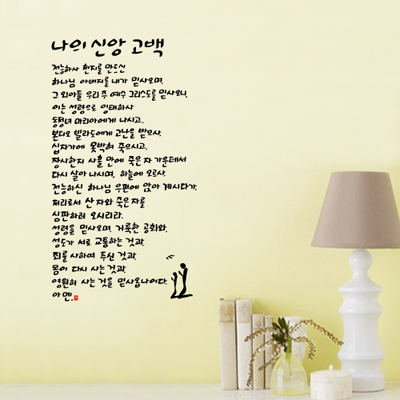 나의 신앙 고백
전능하사 천지를 만드신
하나님 아버지를 내가 믿사오며,
그 외아들 우리 주 예수 그리스도를 믿사오니,
이는 성령으로 잉태하사
동정녀 마리아에게 나시고,
본디오 빌라도에게 고난을 받으사,
십자가에 못박혀 죽으시고,
장사한지 사흘 만에 죽은 자 가운데서
다시 살아 나시며, 하늘에 오르사,
전능하신 하나님 우편에 앉아 계시다가,
저리로서 산 자와 죽은 자를
심판하러 오시리라.
성령을 믿사오며, 거룩한 공회와,
성도가 서로 교통하는 것과,
죄를 사하여 주신 것과,
몸이 다시 사는 것과,
영원히 사는 것을 믿사옵나이다.
아멘.